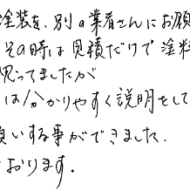 塗装を、別の業者さんにお願
その時は見積だけで塗料
思ってましたが
はわかりやすく説明をして
良いする事ができました.
おります.